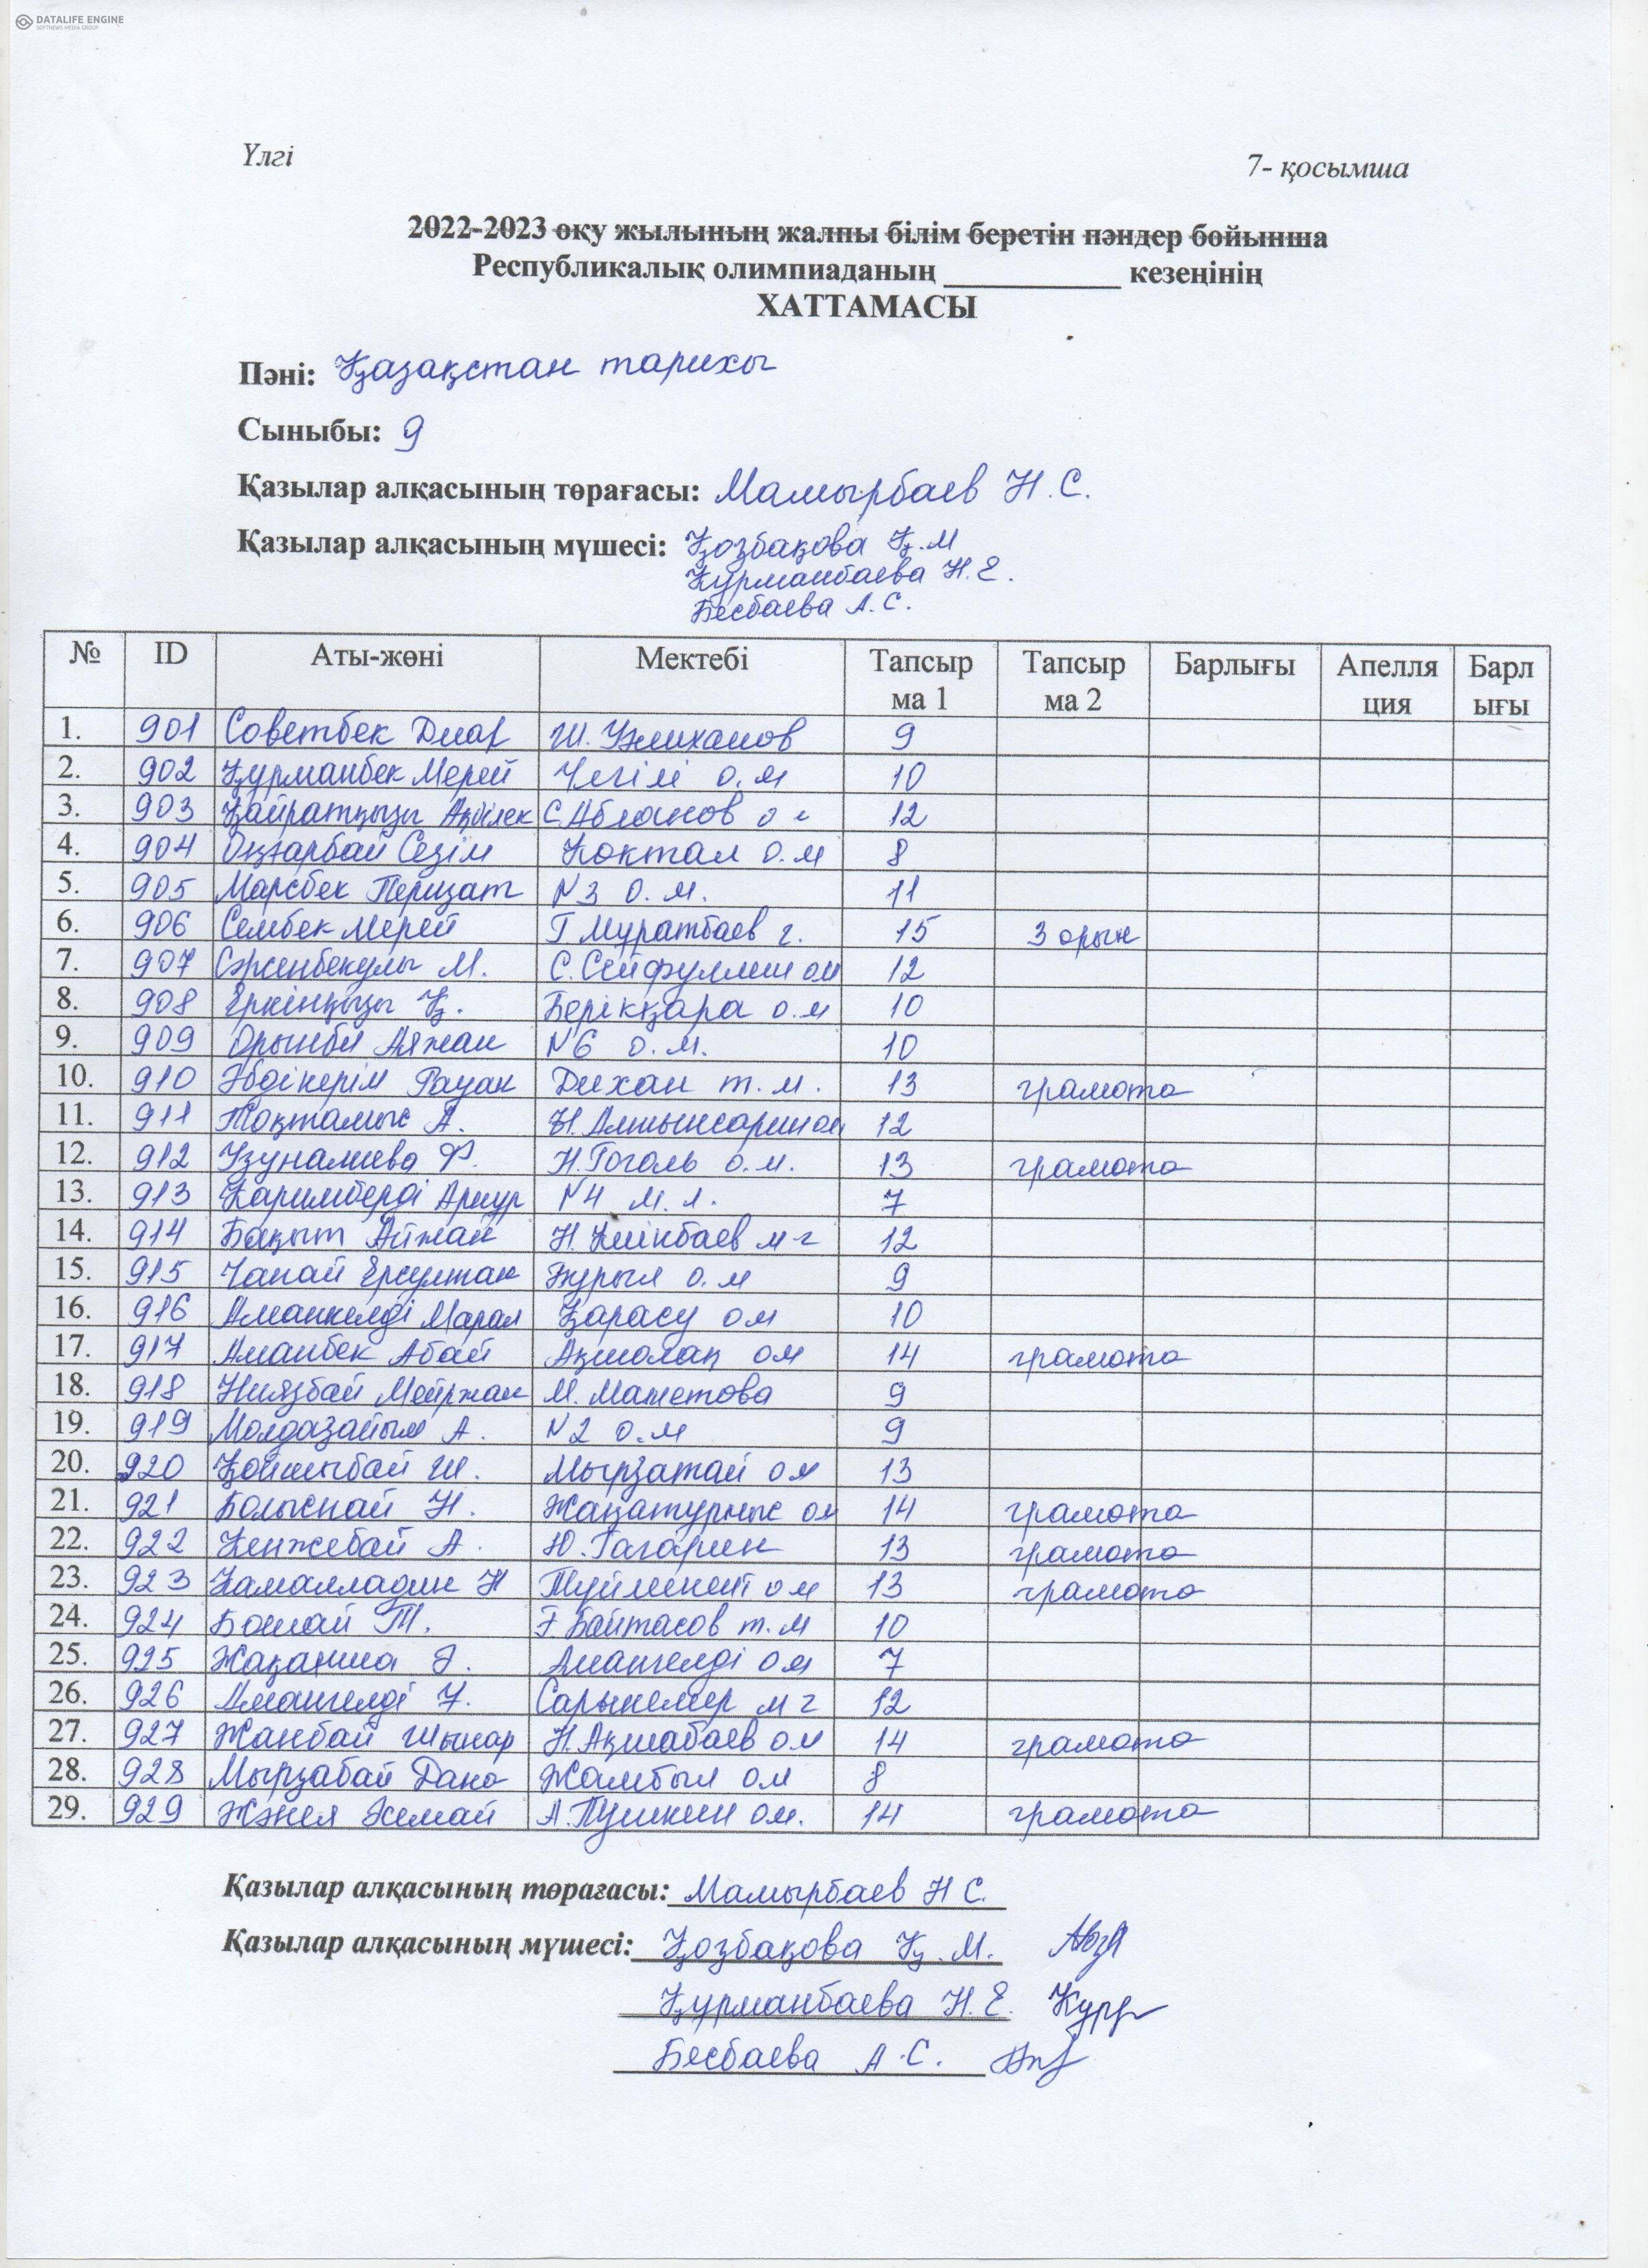 DATALIFE ENGINE
SOFTNEWS MEDIA GROUP
Үлгі
7- қосымша
2022-2023 оқу жылының жалпы білім беретін пәндер бойынша
Республикалық олимпиаданың ___________ кезеңінің
ХАТТАМАСЫ
Пәні: Қазақстан тарихы
Сыныбы: 9
Қазылар алқасының төрағасы: Мамырбаев Н.С.
Қазылар алқасының мүшесі: Қозбақова Қ.М
Құрманбаева Н.Е.
Бесбаева А.С.
№ ID Аты-жөні Мектебі Тапсыр ма 1 Тапсыр ма 2 Барлығы Апелля ция Барл ығы
1. 901 Советбек Диар Ш. Уәлиханов 9
2. 902 Құрманбек Мерей Үлгілі о.м 10
3. 903 Қайратқызы Ақбілек С.Абланов о м 12
4. 904 Оңғарбай Сезім Көктал о.м 8
5. 905 Марсбек Перизат N3 о.м. 11
6. 906 Сембек Мерей Ғ Мұратбаев г. 15 3 орын
7. 907 Сәрсенбекұлы М. С.Сейфуллин ом 12
8. 908 Еркінқызы Қ. Беріккара о.м 10
9. 909 Орынбай Аяжан N6 о.м. 10
10. 910 Әбдікерім Рауан Дихан т.м. 13 грамота
11. 911 Тоқтамыс А. Ы.Алтынсарин ом 12
12. 912 Узуналиева Ф. Н.Гоголь о.м. 13 грамота
13. 913 Каримберді Арнұр N4 м.л. 7
14. 914 Бақыт Айжан Н.Киікбаев м г 12
15. 915 Чапай Ерсұлтан Жұрын о.м 9
16. 916 Аманкелді Марал Қарасу ом 10
17. 917 Аманбек Абай Ақшолақ ом 14 грамота
18. 918 Ниязбай Мейржан М. Маметова 9
19. 919 Молдазайым А. N2 о.м 9
20. 920 Қойшыбай Ш. Мырзатай ом 13
21. 921 Болыспай Н. Жаңатұрмыс ом 14 грамота
22. 922 Кенжебай А. Ю.Гагарин 13 грамота
23. 923 Камалладин Н Түймекент ом 13 грамота
24. 924 Бошай Т. Ә.Байтасов т.м 10
25. 925 Жақанша Ә. Амангелді ом 7
26. 926 Амангелді Ұ. Сарыкемер м г 12
27. 927 Жанбай Шынар Н.Ақшабаев ом 14 грамота
28. 928 Мырзабай Дана Жамбыл ом 8
29. 929 А.Пушкин ом. 14 грамота
Қазылар алқасының төрағасы: Мамырбаев Н С.
Қазылар алқасының мүшесі: Қозбақова Қ.М.
Құрманбаева Н.Е.
Бесбаева А.С.